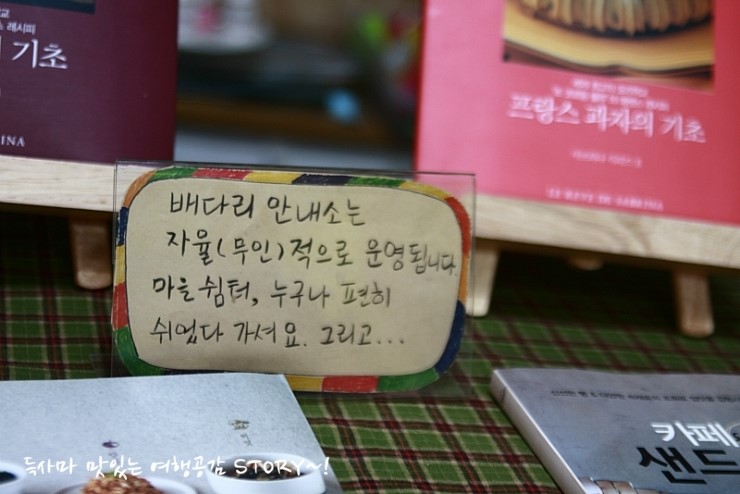 레시피
의 기초
프랑스 과자의 기초
배다리 안내소는
자율(무인)적으로 운영됩니다.
마을 쉼터, 누구나 편히
쉬었다 가셔요. 그리고...
카페
샌드
득사마 맛있는 여행공감 STORY~!